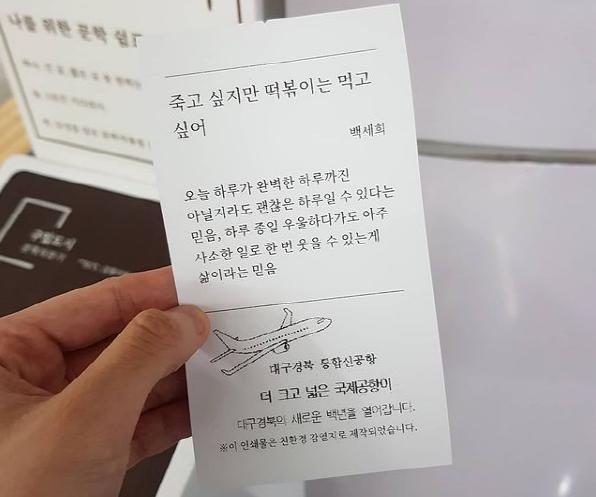 나를 위한 문학
죽고 싶지만 떡볶이는 먹고
싶어
백세희
오늘 하루가 완벽한 하루까진
아닐지라도 괜찮은 하루일 수 있다는
믿음, 하루 종일 우울하다가도 아주
사소한 일로 한 번 웃을 수 있는게
삶이라는 믿음
대구경북 통합신공항
더 크고 넓은 국제공항이
대구경북의 새로운 백년을 열어갑니다.
※이 인쇄물은 친환경 감열지로 제작되었습니다.